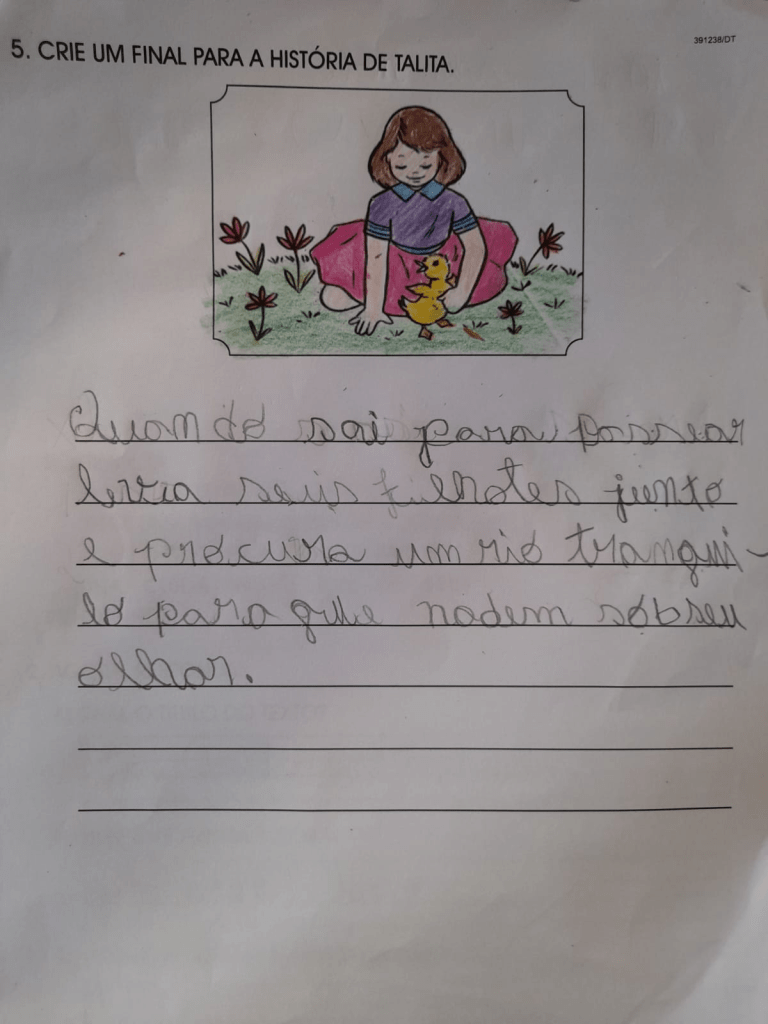 391238/DT
5. CRIE UM FINAL PARA A HISTÓRIA DE TALITA.
Quando sai para passear
leva seus filhotes junto
e procura um rio tranqui-
lo para que nadem sob seu
olhar.